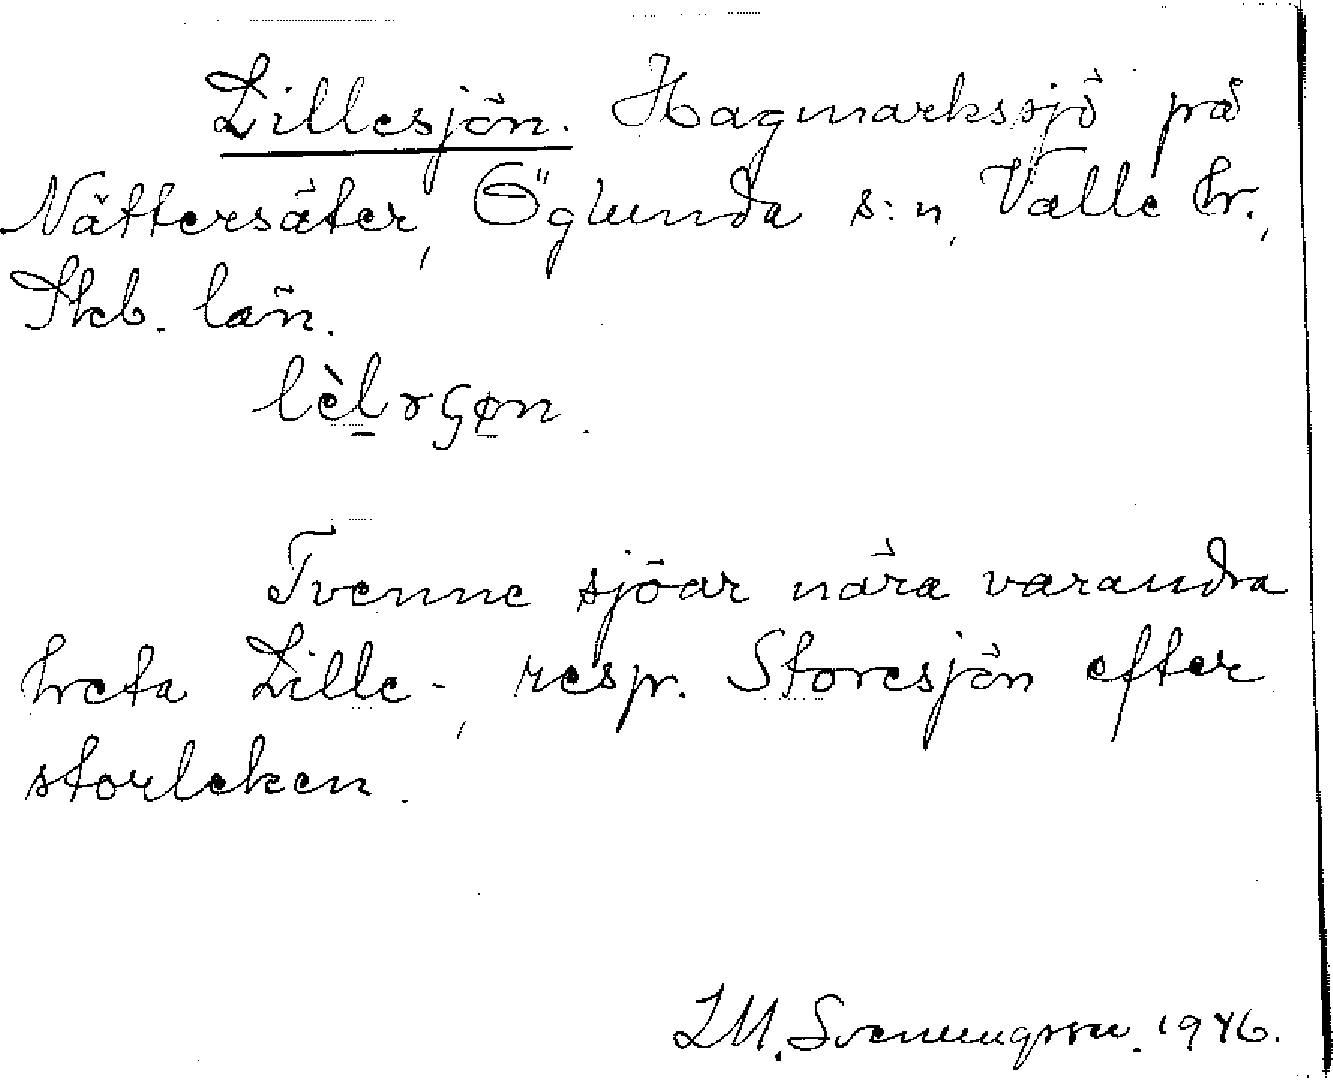 Lillesjön. Hagmarkssjö på
Nättersäter, Öglunda s:n, Valle hr.,
Skb. län.
Tvenne sjöar nära varandra
heta Lille-, resp. Storesjön efter
storleken.
LM. Svenungsson. 1946.